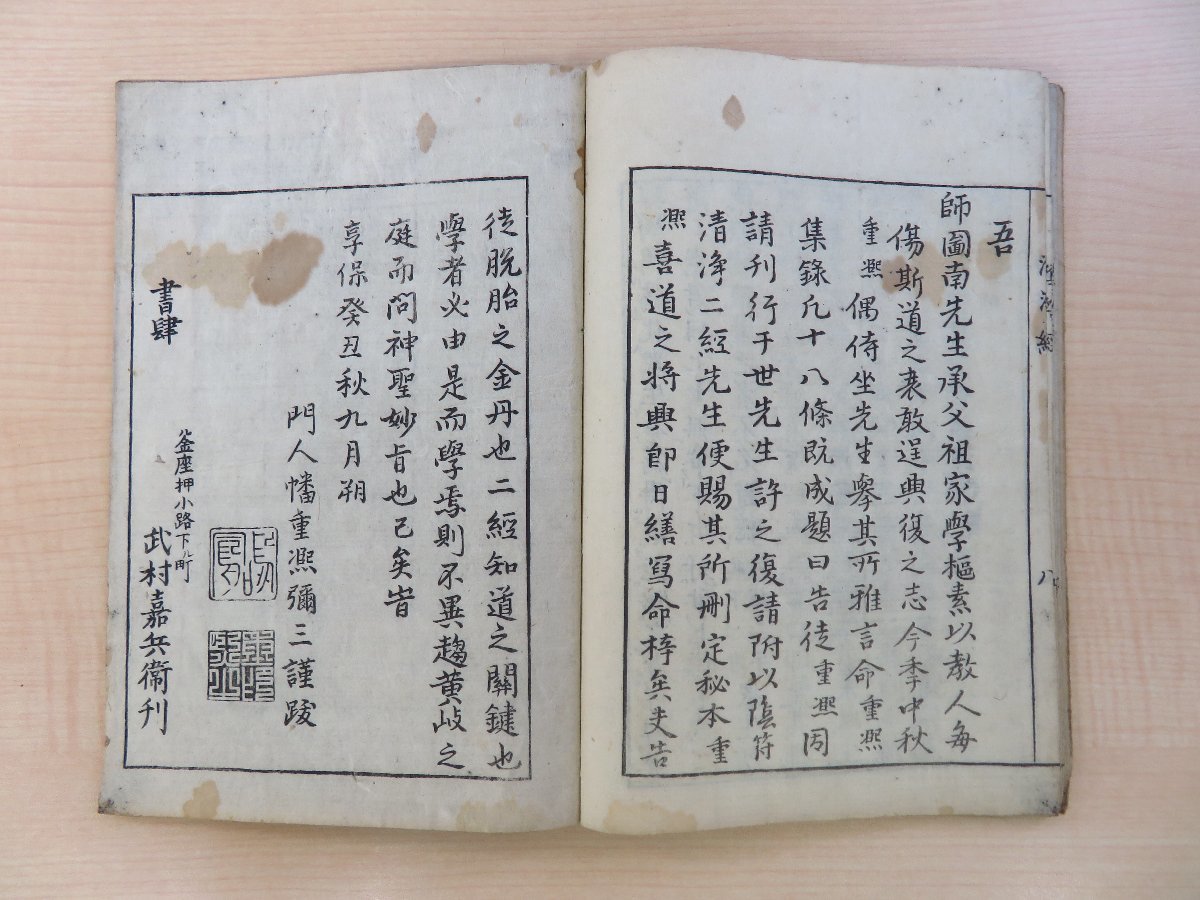 吾
師圖南先生承父祖家學樞素以教人每
傷斯道之衰敢逞興復之志今季中秋
重凞偶侍坐先生擧其所雅言命重凞
集錄凢十八條既成題曰告徒重凞因
請刊行于世先生許之復請附以陰符
清浄二經先生便賜其所刪定秘本重
凞喜道之将興即日繕寫命梓矣夫告
徒脱胎之金丹也二經知道之關鍵也
學者必由是而學焉則不異趨黄岐之
庭而問神聖妙旨也已矣旹
享保癸丑秋九月朔
門人幡重凞彌三謹跋
書肆
釜座押小路下ル町
武村嘉兵衞刊